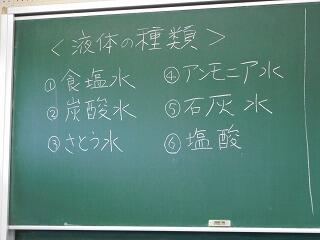 ＜液体の種類＞
①食塩水
②炭酸水
③さとう水
④アンモニア水
⑤石灰水
⑥塩酸